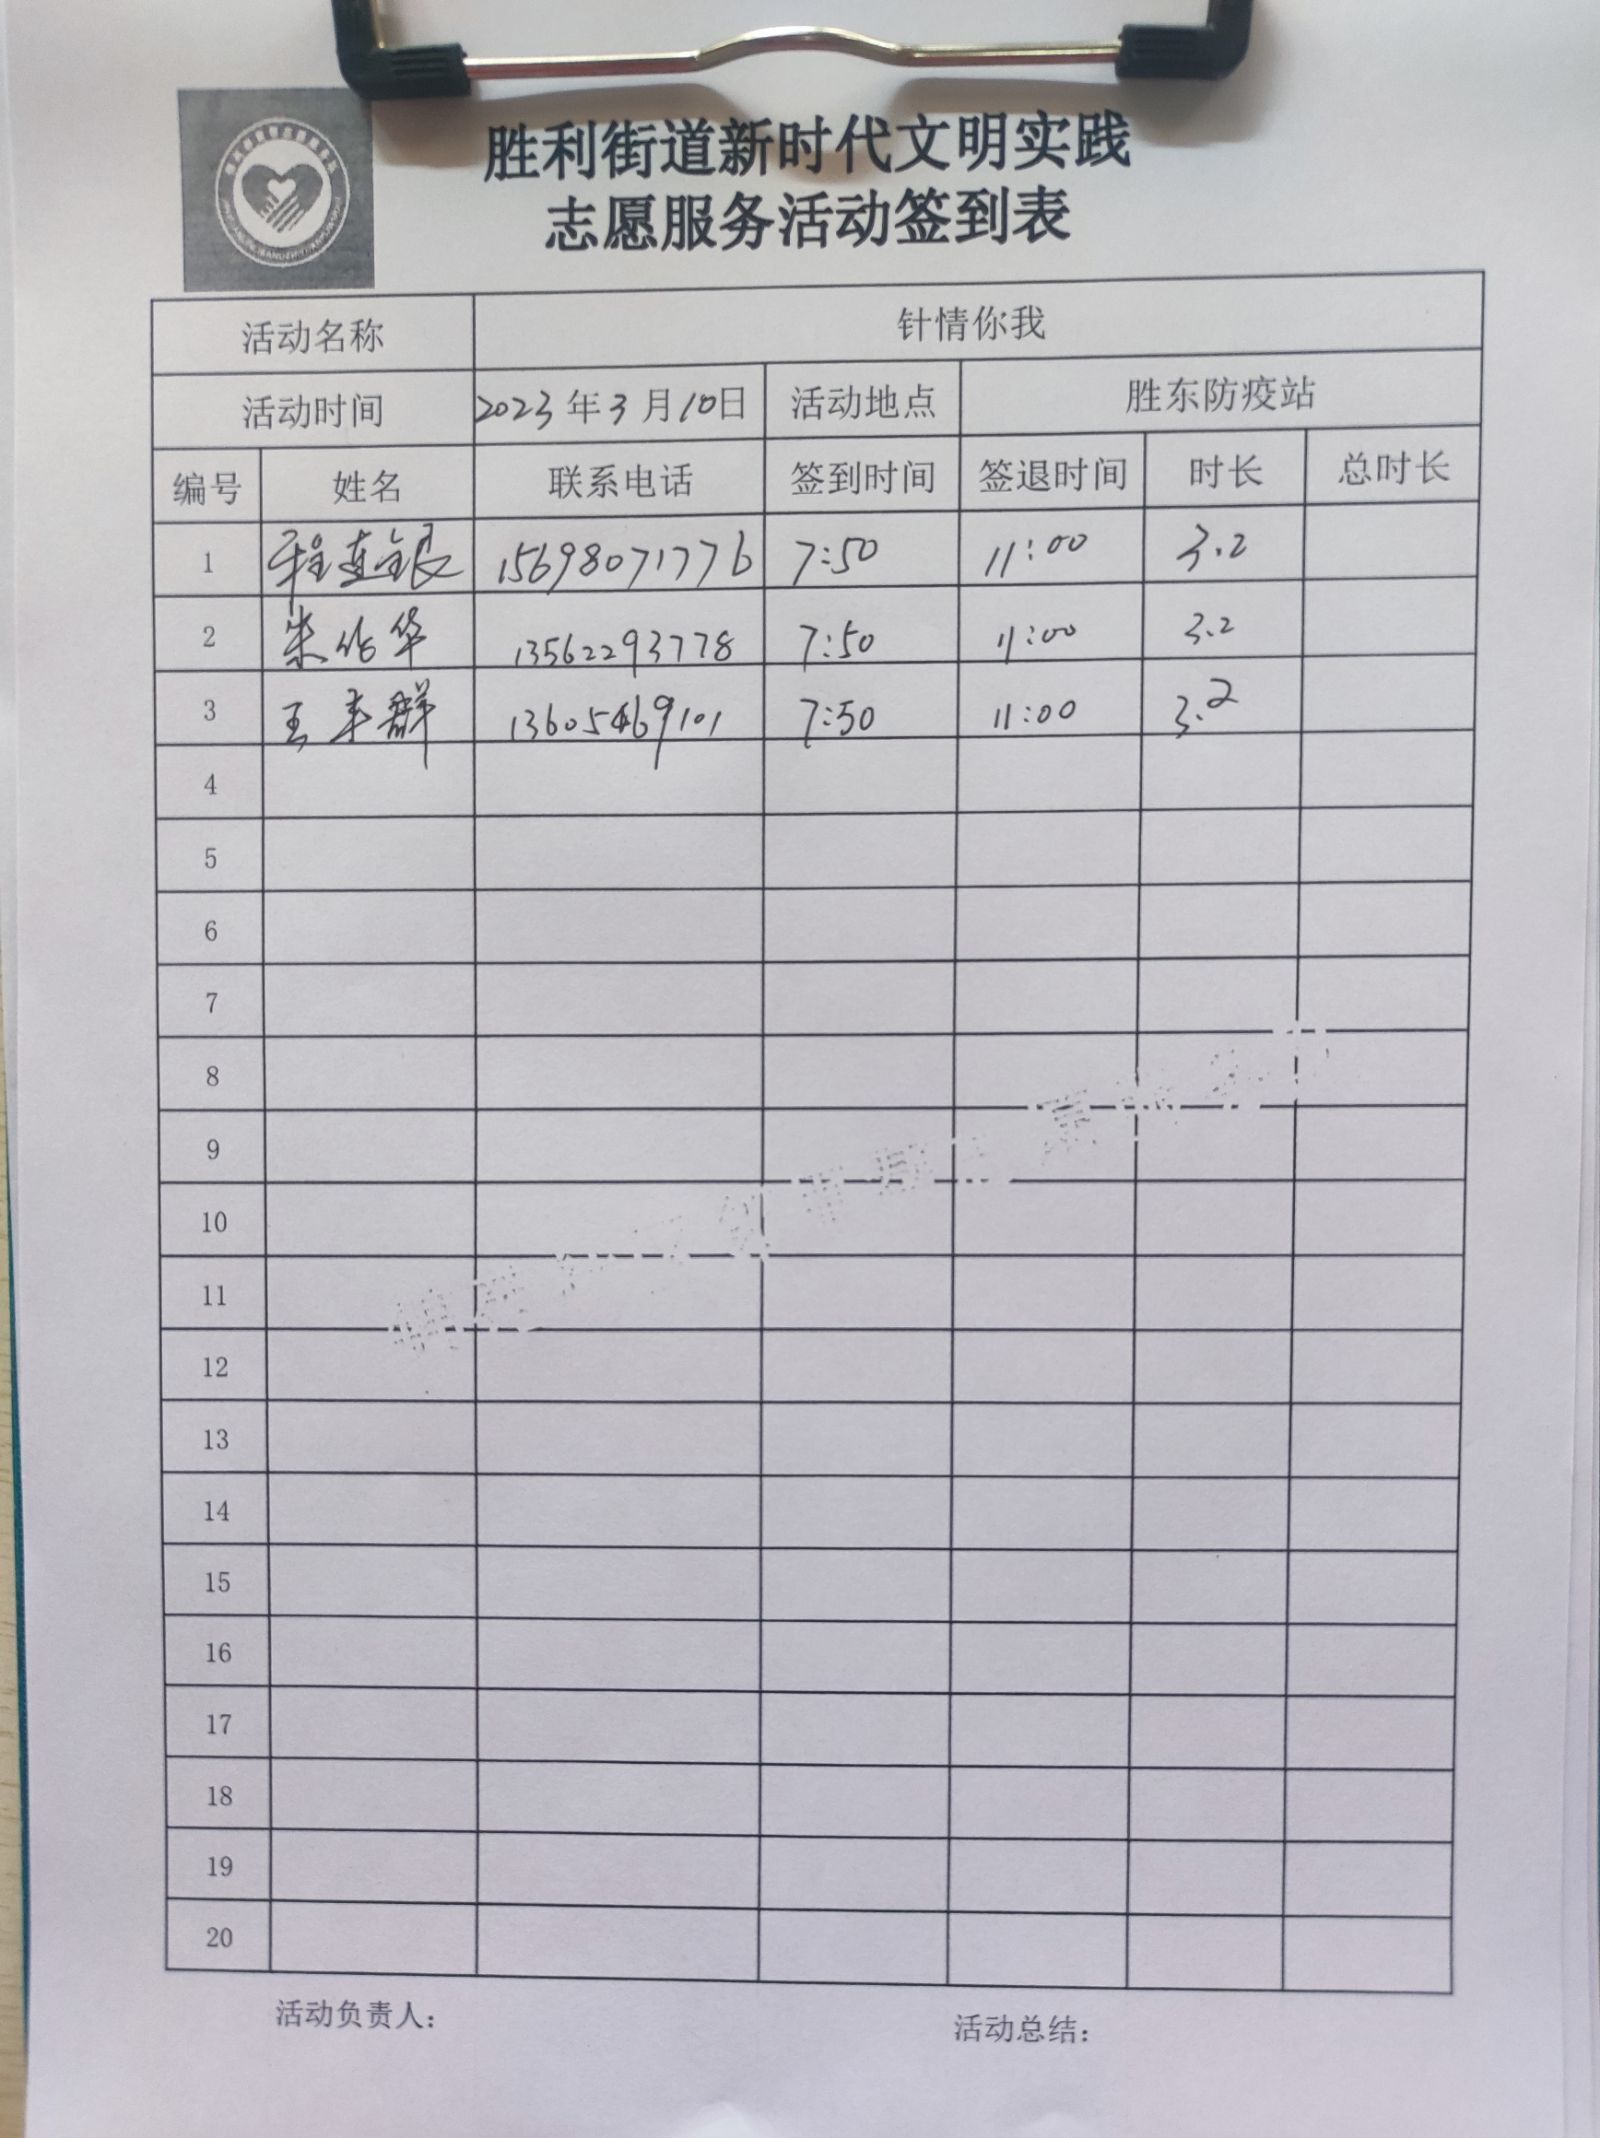 胜利街道新时代文明实践
志愿服务活动签到表
活动名称 针情你我
活动时间 2023年3月10日 活动地点 胜东防疫站
编号 姓名 联系电话 签到时间 签退时间 时长 总时长
1 程连银 15698071776 7:50 11:00 3.2
2 朱 华 13562293778 7:50 11:00 3.2
3 王 群 13605469101 7:50 11:00 3.2
4
5
6
7
8
9
10
11
12
13
14
15
16
17
18
19
20
活动负责人： 活动总结：